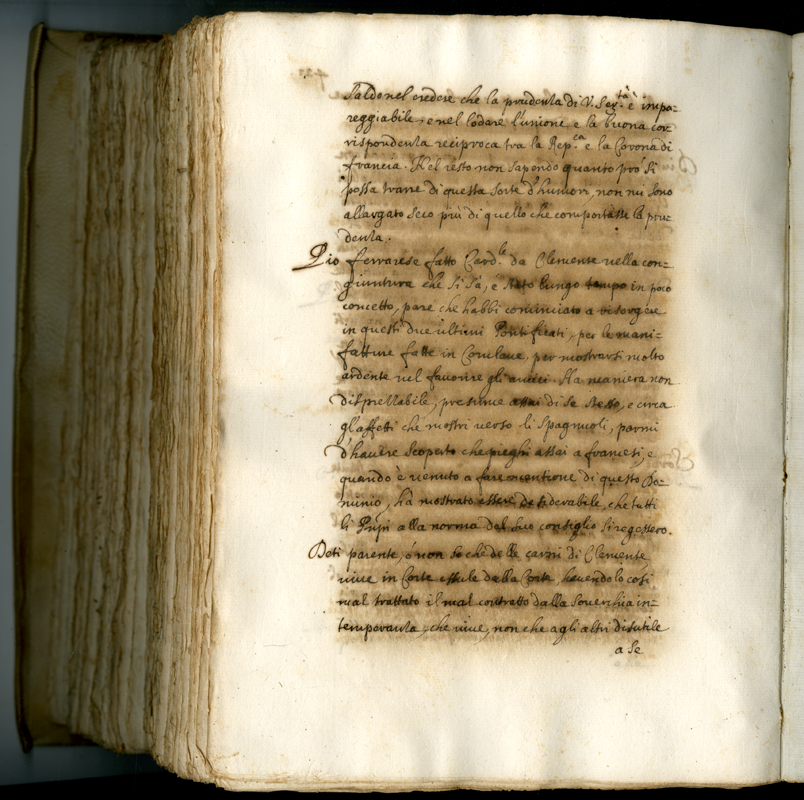 saldo nel credere che la prudenza di V. Ser.tà è impa=
reggiabile, e nel lodare l'unione e la buona cor
rispondenza reciproca tra la Rep.ca e la Corona di
francia. Nel resto non sapendo quanto prò si
possa trarre di questa sorte d'humori, non mi sono
allargato seco più di quello che comportasse la pru=
denza.
Pio ferrarese fatto Card.le da Clemente nella con=
giuntura che si sà, e stato lungo tempo in poco
concetto, pare che habbi cominciato a risorgere
in questi due ultimi Pontificati, per le mani=
fatture fatte in Conclave, per mostrarsi molto
ardente nel favorire gli amici. Ha maniera non
disprezzabile, presume assai di se stesso, e circa
gl'affetti che mostri verso li Spagnuoli, parmi
d'havere scoperto che pieghi assai a francesi, e
quando è venuto a fare mentione di questo Do=
minio, hà mostrato essere desiderabile, che tutti
li Prpi alla norma del suo consiglio si regessero.
Deti parente, ò non so che delle carni di Clemente
vive in Corte essule dalla Corte, havendolo così
mal trattato il mal contratto dalla soverchia in=
temperanza, che vive, non che agli altri disutile
a se